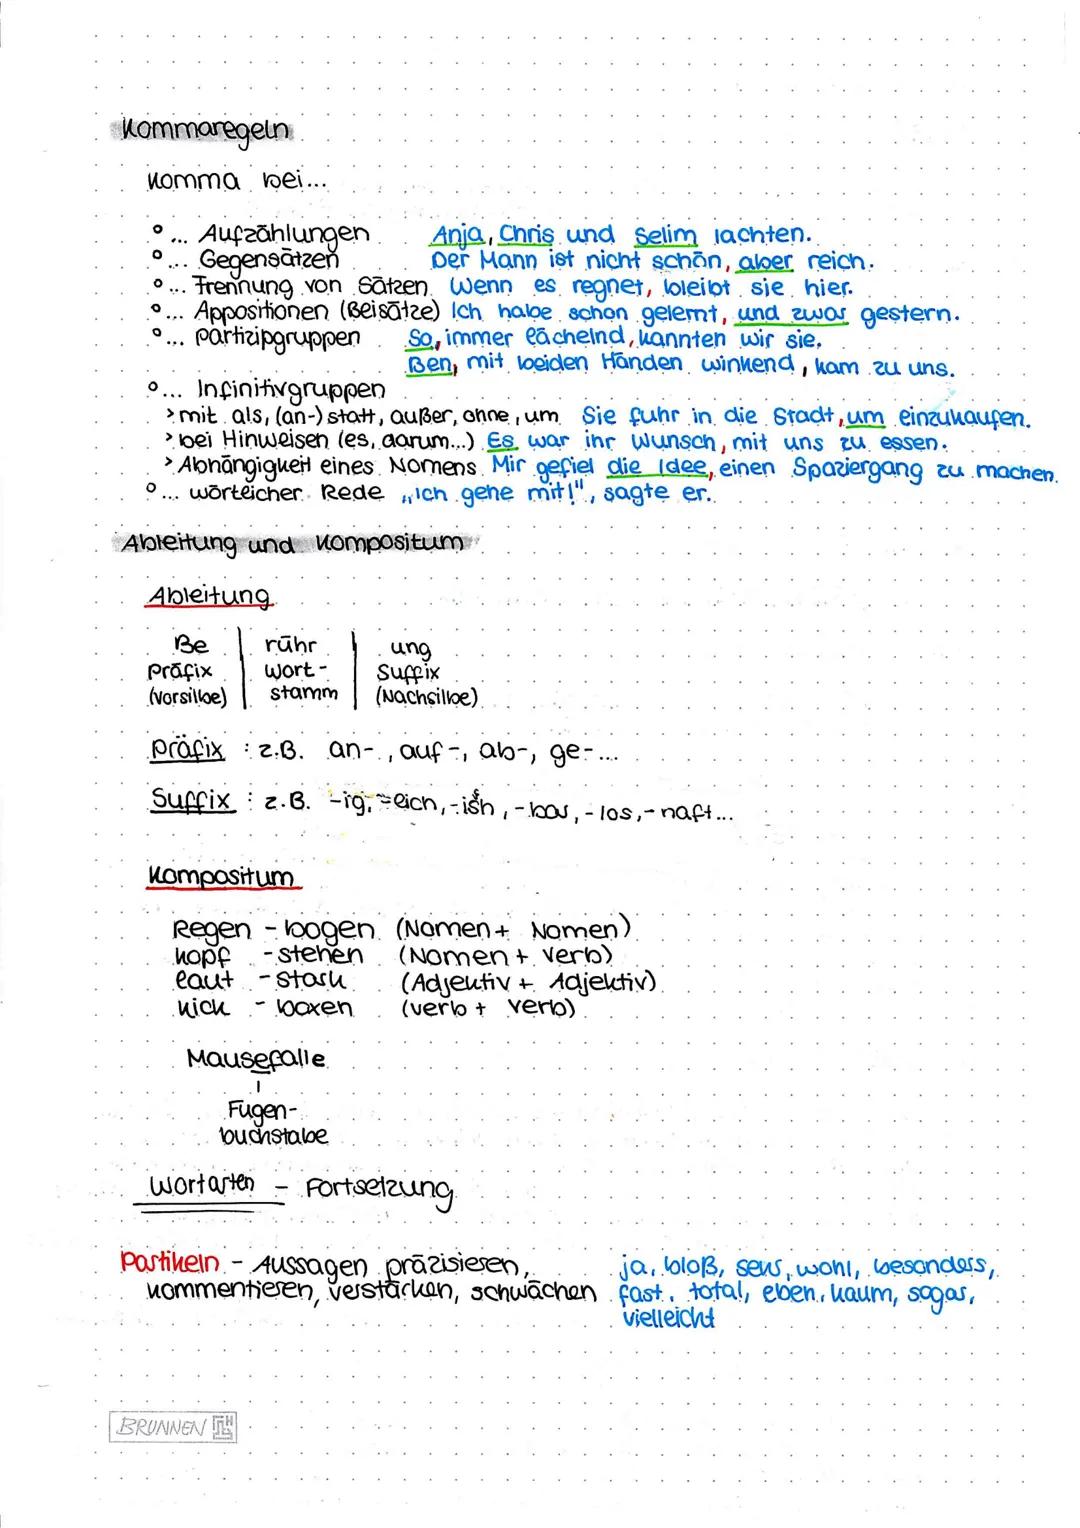 Kommaregeln
Komma bei...
° ... Aufzählungen Anja, Chris und Selim lachten.
° ... Gegensätzen Der Mann ist nicht schön, aber reich.
° ... Trennung von Sätzen Wenn es regnet, bleibt sie hier.
° ... Appositionen (Beisätze) Ich habe schon gelernt, und zwar gestern.
° ... Partizipgruppen So, immer lächelnd, kannten wir sie.
Ben, mit beiden Händen winkend, kam zu uns.
° ... Infinitivgruppen
> mit als, (an-) statt, außer, ohne, um Sie fuhr in die Stadt, um einzukaufen.
> bei Hinweisen (es, darum...) Es war ihr Wunsch, mit uns zu essen.
> Abhängigkeit eines Nomens Mir gefiel die Idee, einen Spaziergang zu machen.
° ... wörtlicher Rede „Ich gehe mit!", sagte er.
Ableitung und Kompositum
Ableitung
Be | rühr | ung
Präfix | Wort- | Suffix
(Vorsilbe) | stamm | (Nachsilbe)
Präfix : z.B. an-, auf-, ab-, ge-...
Suffix : z.B. -ig, -lich, -ish, -bar, -los, -haft...
Kompositum
Regen - bogen (Nomen + Nomen)
kopf - stehen (Nomen + Verb)
laut - stark (Adjektiv + Adjektiv)
kick - boxen (Verb + Verb)
Mausefalle
Fugen-
buchstabe
Wortarten - Fortsetzung
Partikeln - Aussagen präzisieren, ja, bloß, sehr, wohl, besonders,
kommentieren, verstärken, schwächen fast, total, eben, kaum, sogar,
vielleicht
BRUNNEN